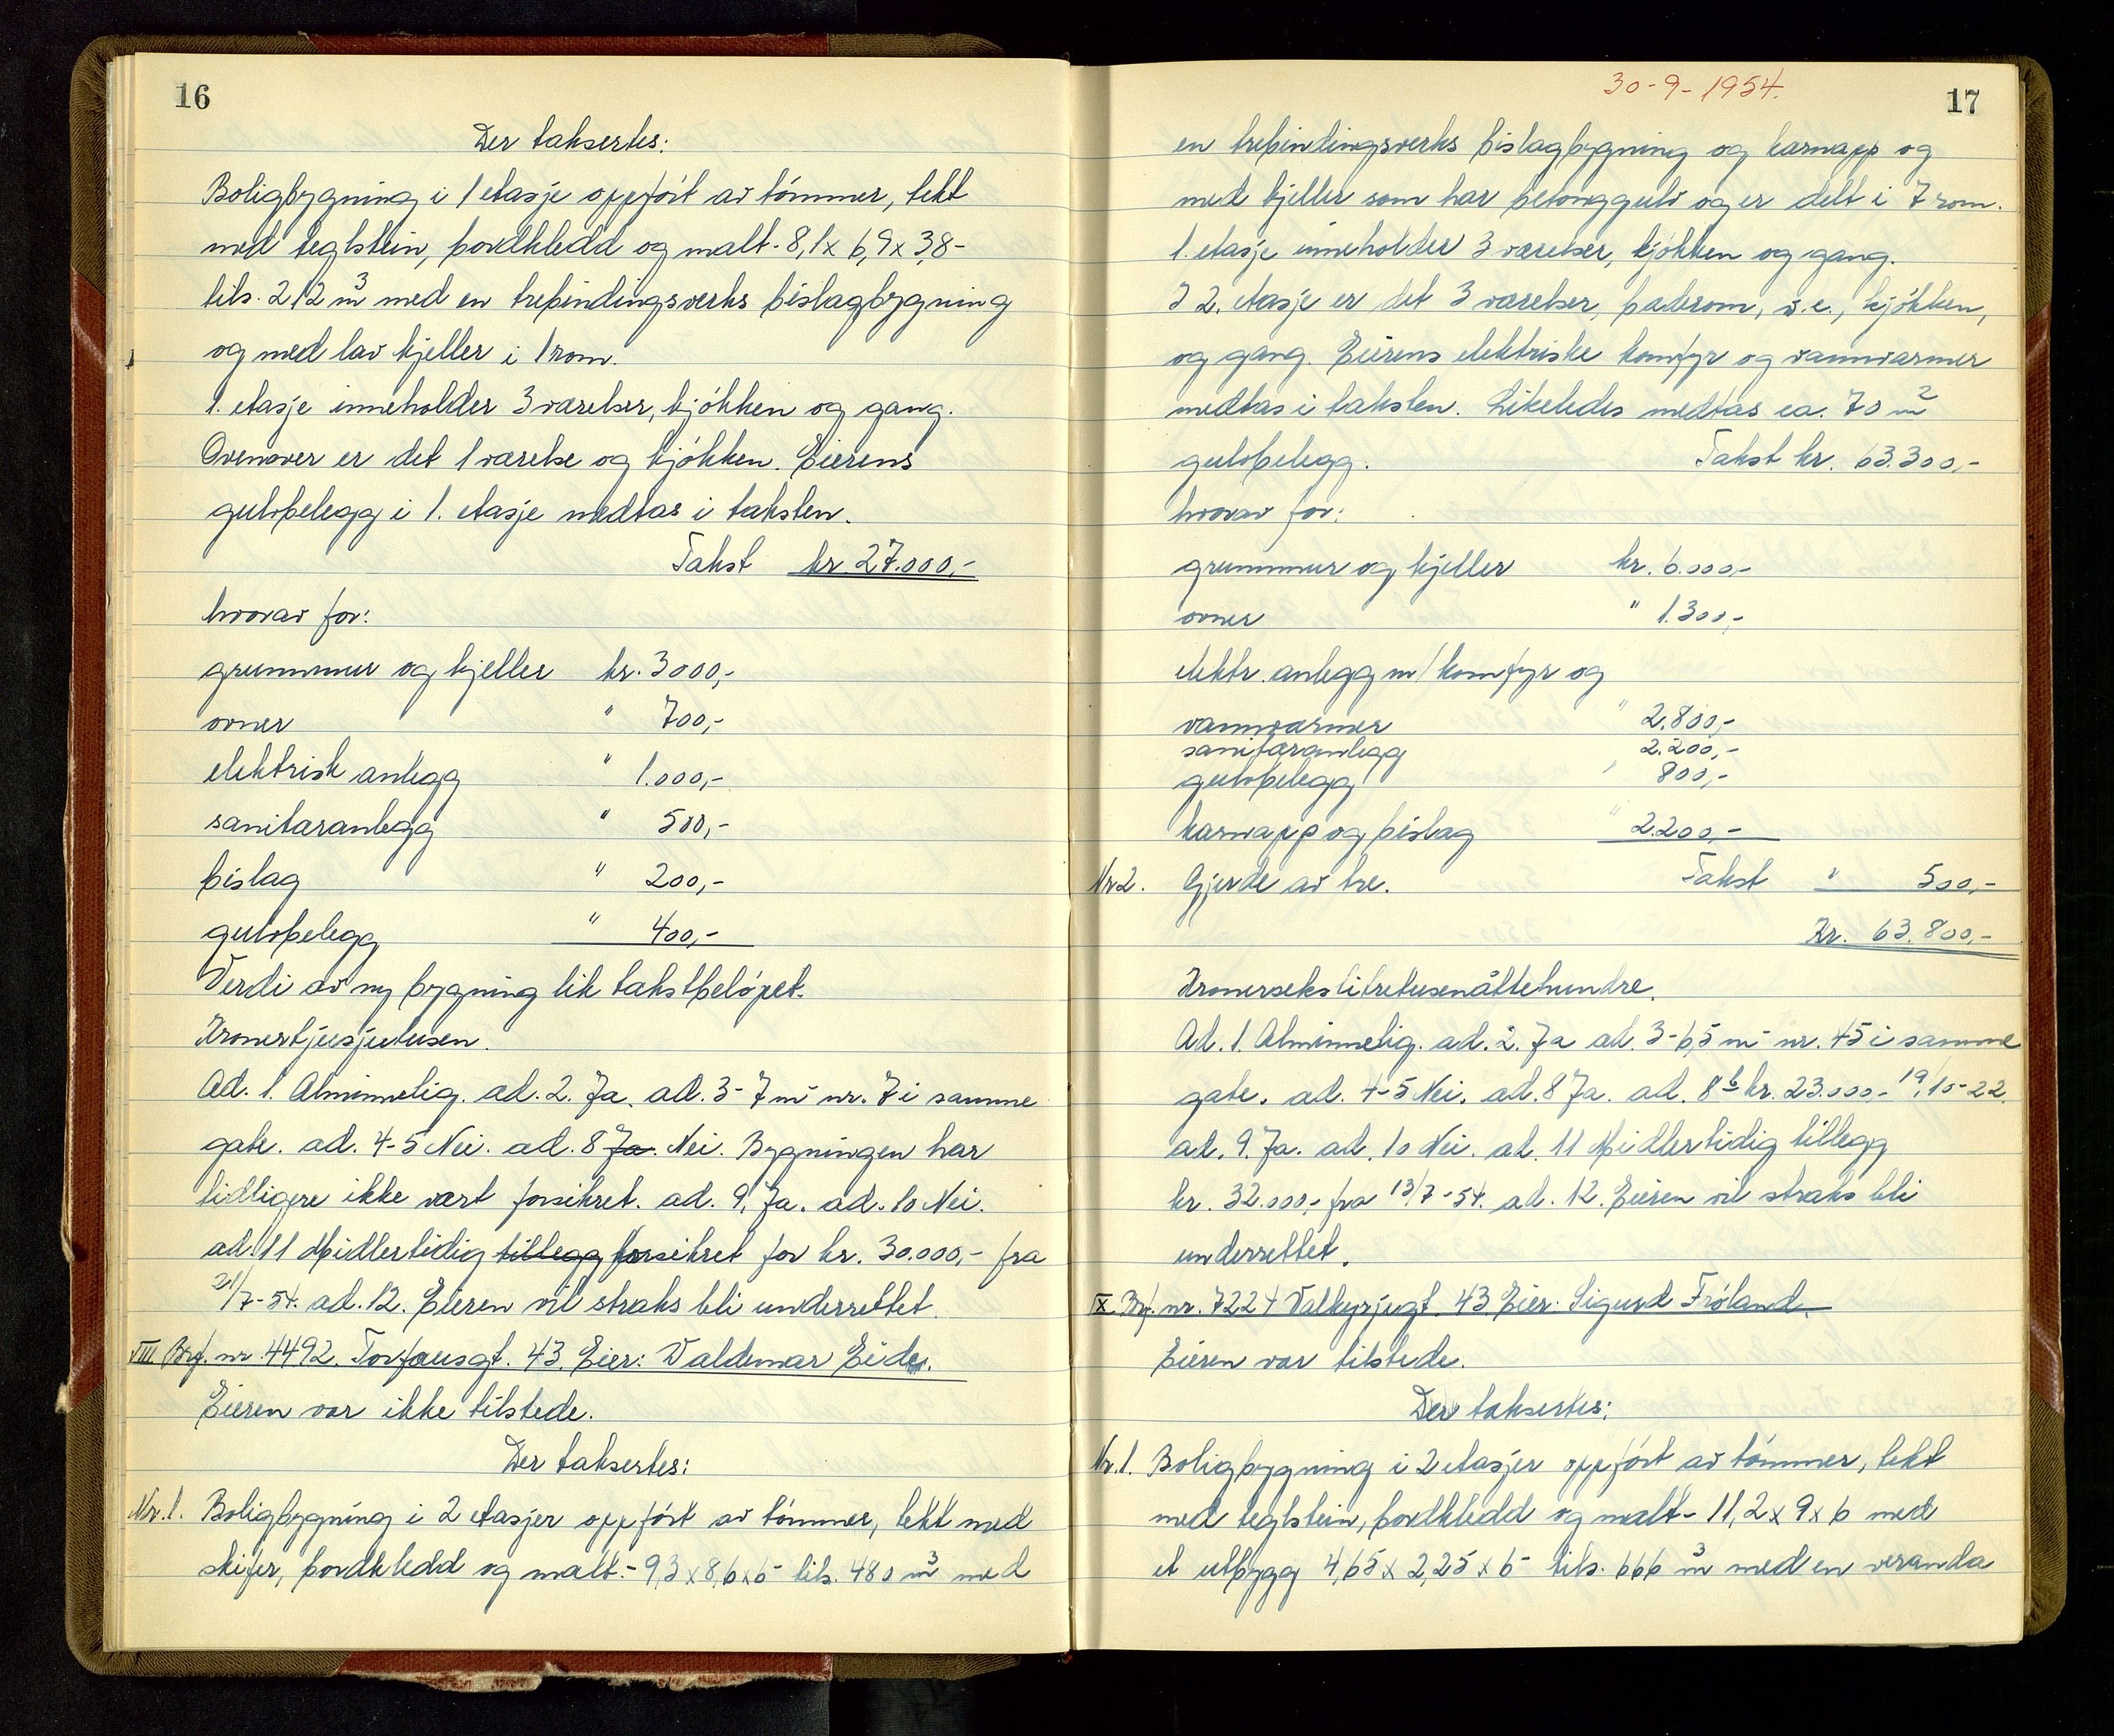 16
Der taksertes:
Boligbygning i 1 etasje oppført av tømmer, tekt
med teglstein, bordkledd og malt - 8,1 x 6,9 x 3,8 -
tils. 212 m³ med en trebindingsverks bislagbygning
og med lav kjeller i 1 rom.
1. etasje inneholder 3 værelser, kjøkken og gang.
Ovenover er det 1 værelse og kjøkken. Eierens
gulvbelegg i 1. etasje medtas i taksten.
Takst kr. 27.000,-
hvorav for:
grunnmur og kjeller kr. 3000,-
ovner " 700,-
elektrisk anlegg " 1.000,-
sanitæranlegg " 500,-
bislag " 200,-
gulvbelegg " 400,-
Verdi av ny bygning lik takstbeløpet.
Kronertjuesjutusen.
Ad. 1. Alminnelig. ad. 2. Ja. ad. 3 - 7 m - nr. 7 i samme
gate. ad. 4-5 Nei. ad. 8 Ja. Nei. Bygningen har
tidligere ikke vært forsikret. ad. 9. Ja. ad. 10 Nei.
ad. 11 Midlertidig tillegg forsikret for kr. 30.000,- fra
21/7-54. ad. 12. Eieren vil straks bli underrettet.
VIII Brf. nr. 4492. Torfæusgt. 43. Eier: Valdemar Eide.
Eieren var ikke tilstede.
Der taksertes:
Nr. 1. Boligbygning i 2 etasjer oppført av tømmer, tekt med
skifer, bordkledd og malt. - 9,3 x 8,6 x 6 - tils. 480 m³ med
30-9-1954.
17
en trebindingsverks bislagbygning og karnapp og
med kjeller som har betonggulv og er delt i 7 rom.
1. etasje inneholder 3 værelser, kjøkken og gang.
I 2. etasje er det 3 værelser, baderom, w.c., kjøkken,
og gang. Eierens elektriske komfyr og vannvarmer
medtas i taksten. Likeledes medtas ca. 70 m²
gulvbelegg. Takst kr. 63.300,-
hvorav for:
grunnmur og kjeller kr. 6.000,-
ovner " 1.300,-
elektr. anlegg m/ komfyr og
vannvarmer " 2.800,-
sanitæranlegg 2.200,-
gulvbelegg " 800,-
karnapp og bislag " 2.200,-
Nr 2. Gjerde av tre. Takst " 500,-
Kr. 63.800,-
Kronersekstitretusenåttehundre.
Ad. 1. Alminnelig. ad. 2. Ja ad. 3 - 6,5 m - nr. 45 i samme
gate. ad. 4-5 Nei. ad. 8 Ja. ad. 8 b kr. 23.000.- 19/10-22.
ad. 9. Ja. ad. 10 Nei. ad. 11 Midlertidig tillegg
kr. 32.000,- fra 13/7-54. ad. 12. Eieren vil straks bli
underrettet.
IX. Brf. nr. 7224 Valkyrjugt. 43 Eier: Sigurd Frøland.
Eieren var tilstede.
Der taksertes:
Nr. 1. Boligbygning i 2 etasjer oppført av tømmer, tekt
med teglstein, bordkledd og malt - 11,2 x 9 x 6 med
et utbygg 4,65 x 2,25 x 6 - tils. 666 m³ med en veranda